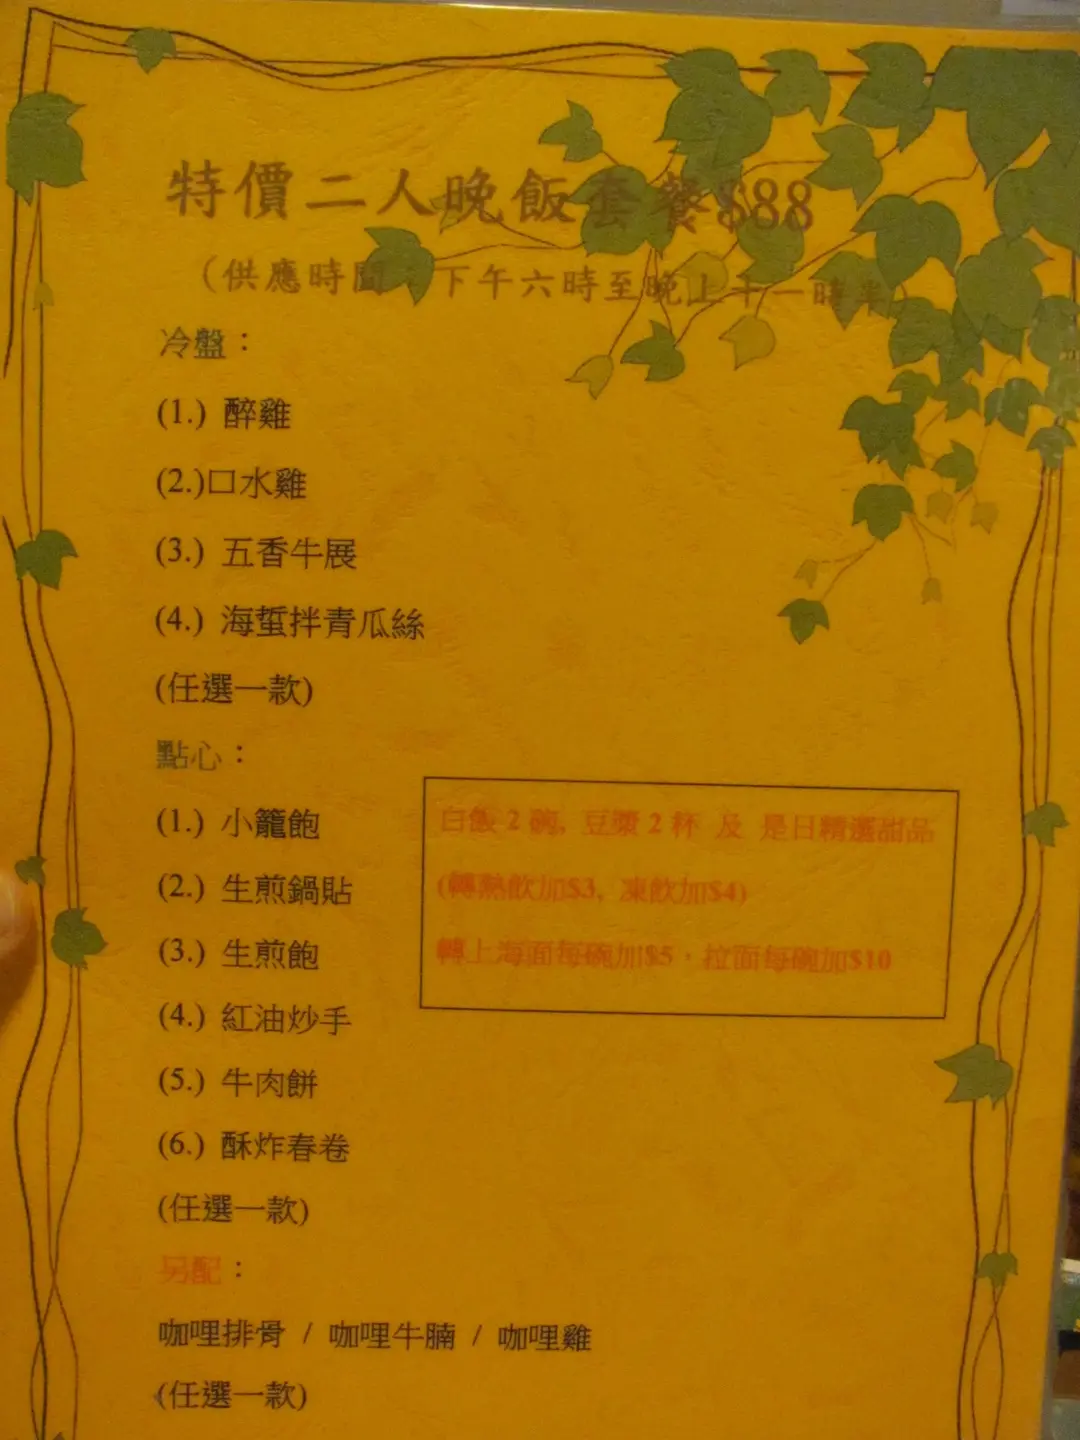 特價二人晚飯套餐$88
(供應時間：下午六時至晚上十一時半)
冷盤：
(1.) 醉雞
(2.)口水雞
(3.) 五香牛展
(4.) 海蜇拌青瓜絲
(任選一款)
點心：
(1.) 小籠飽
(2.) 生煎鍋貼
(3.) 生煎飽
(4.) 紅油炒手
(5.) 牛肉餅
(6.) 酥炸春卷
(任選一款)
白飯 2 碗, 豆漿 2 杯 及 是日精選甜品
(轉熱飲加$3, 凍飲加$4)
轉上海面每碗加$5，拉面每碗加$10
另配：
咖哩排骨 / 咖哩牛腩 / 咖哩雞
(任選一款)